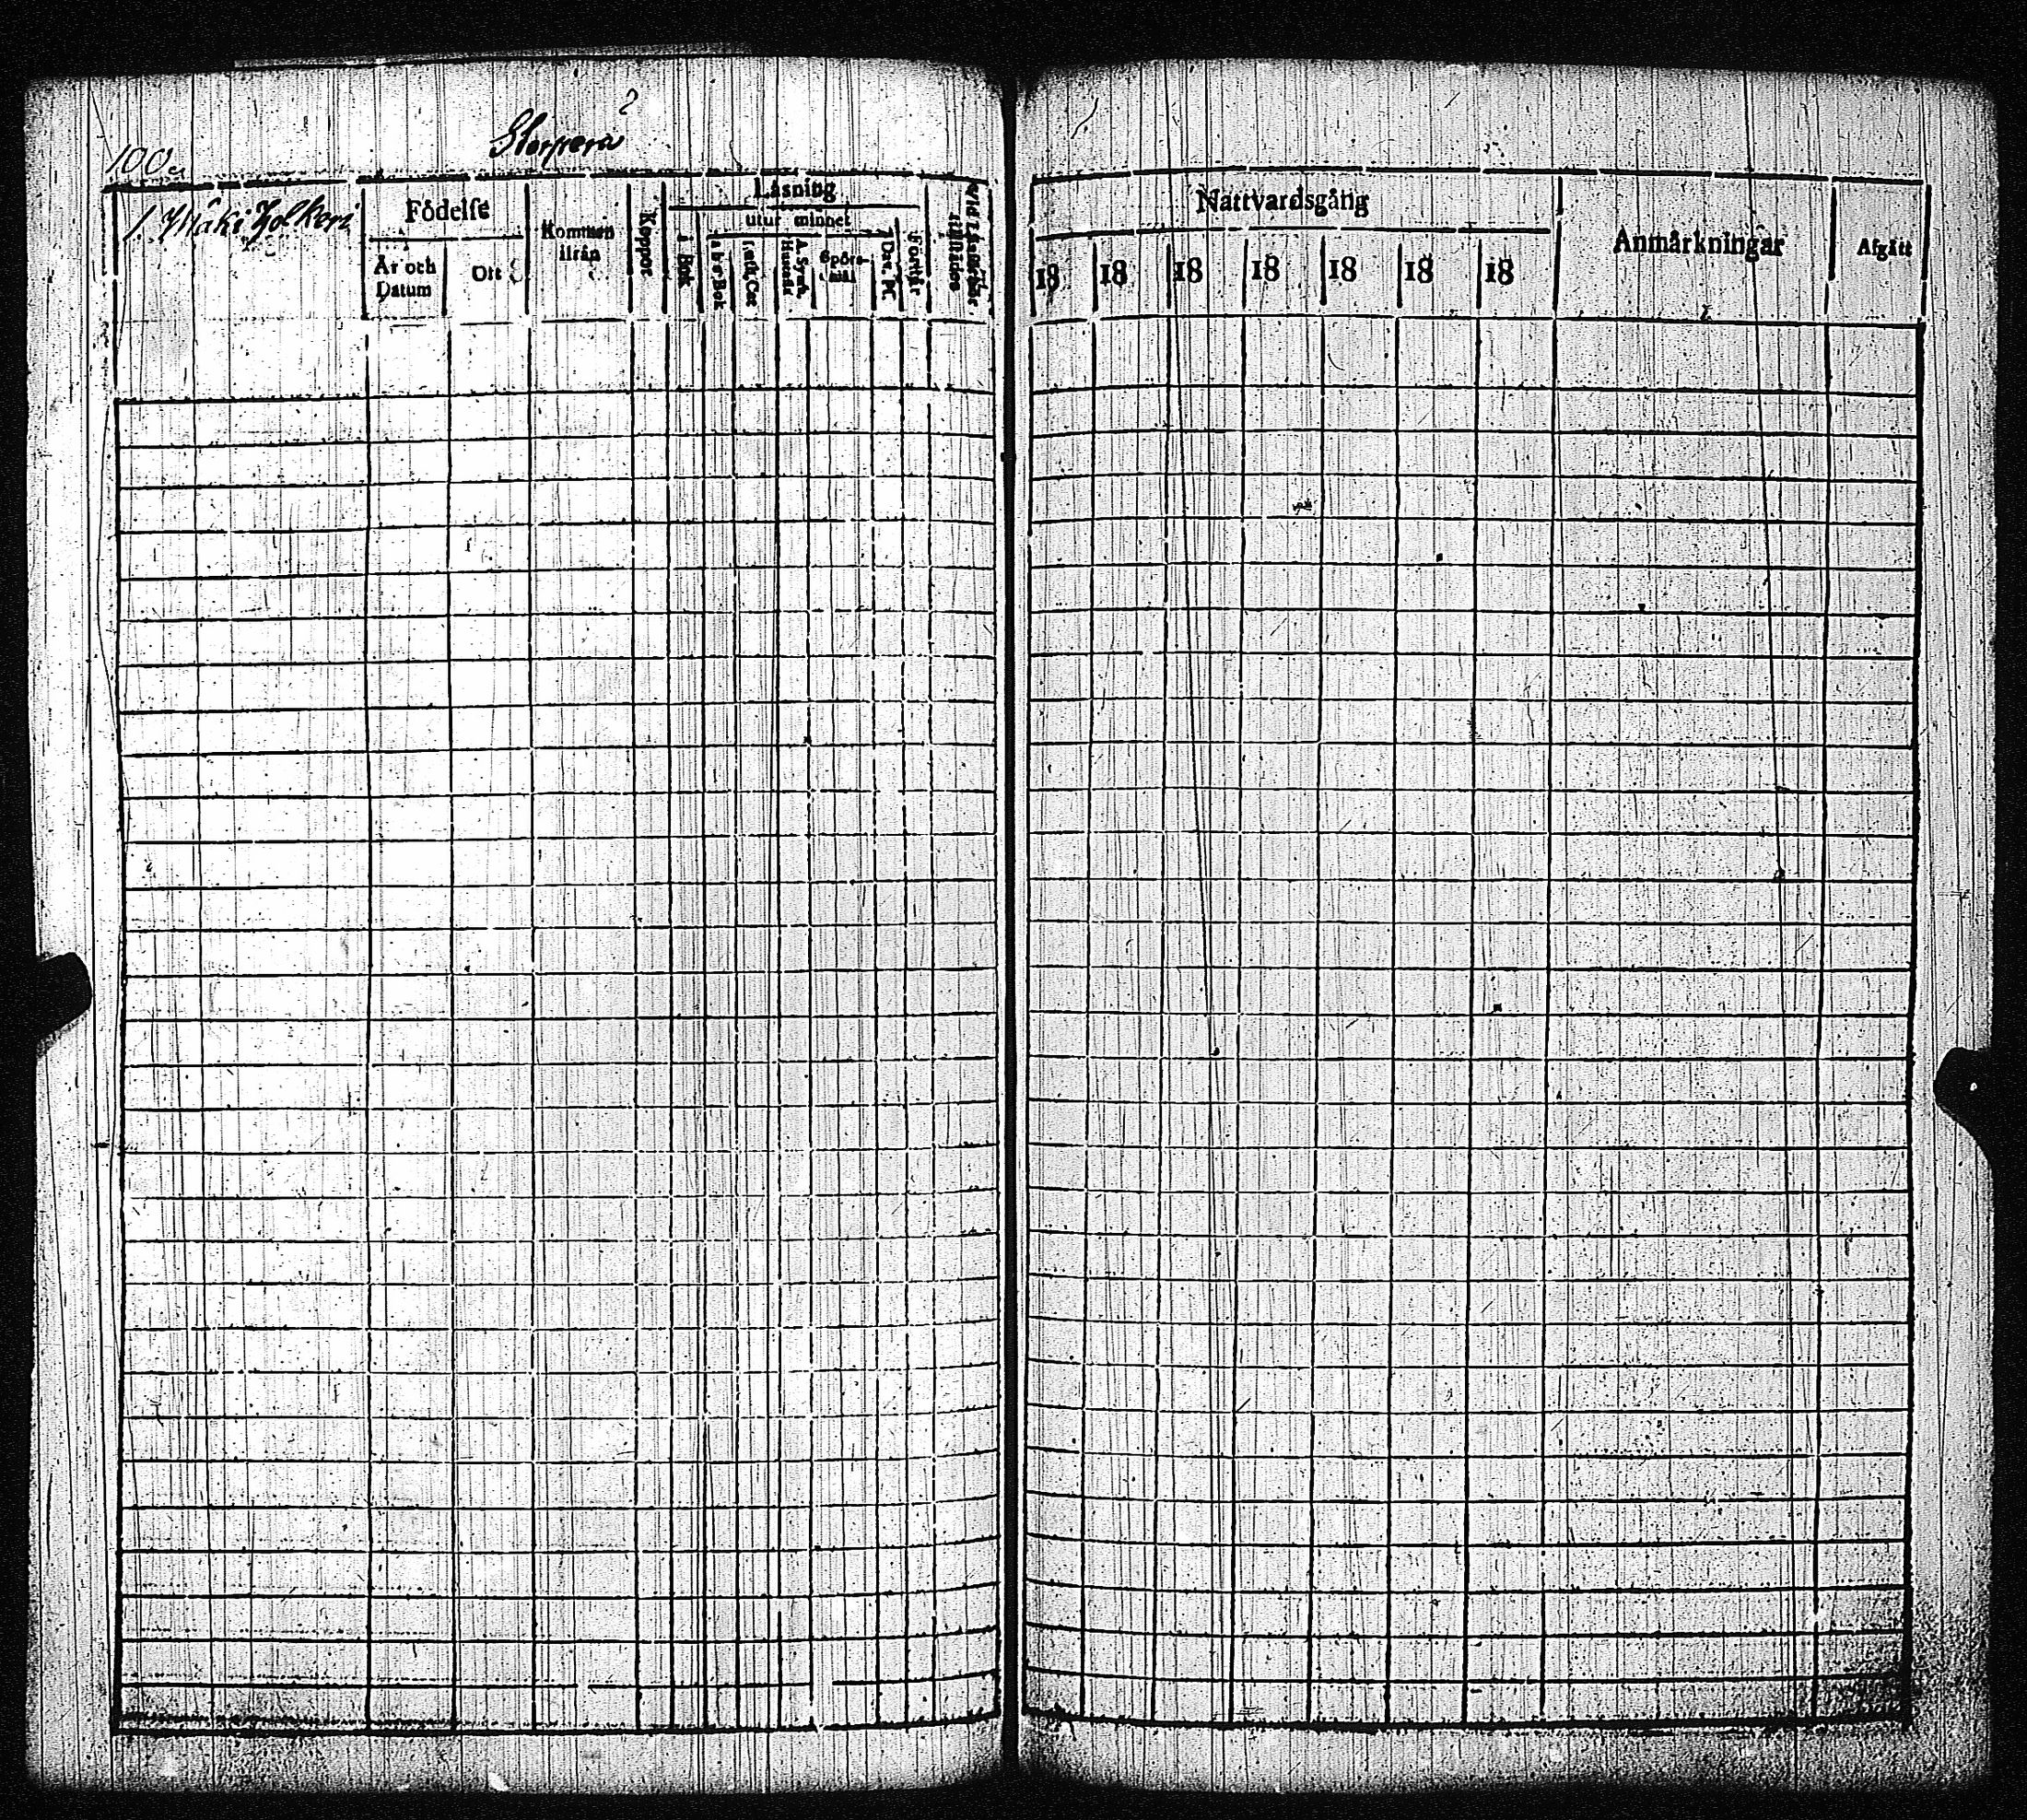 100.
Storperä
1. Mäki Holkeri
Födelse
År och Datum
Ort
Kommen ifrån
Koppor
Läsning
i Bok
utur minnet
a b c Bok
A. Symb.
Spörsmål
Dav. Ps.
Förstår
Nattvardsgång
18 18 18 18 18 18 18
Anmärkningar
Afgått